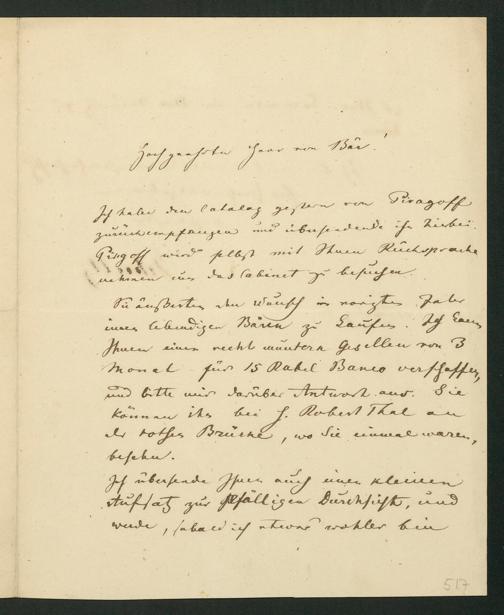 Hochgeehrter Herr von Bär!
Ich habe den Catalog gestern von Piragoff
zurückempfangen und übersende ihn hierbei.
Pirgoff wird selbst mit Ihnen Rücksprache
nehmen um das Cabinet zu besuchen.
Sie äußerten den Wunsch im vorigten Jahre
einen lebendigen Bären zu kaufen. Ich kann
Ihnen einen recht muntern Gesellen von 3
Monat für 15 Rubel Banco verschaffen,
und bitte mir darüber Antwort aus. Sie
können ihn bei H. Robert Thal an
der rothen Brücke, wo Sie einmal waren,
besehen.
Ich übersende Ihnen auch einen kleinen
Aufsatz zur gefälligen Durchsicht, und
werde, sobald ich etwas wohler bin
517